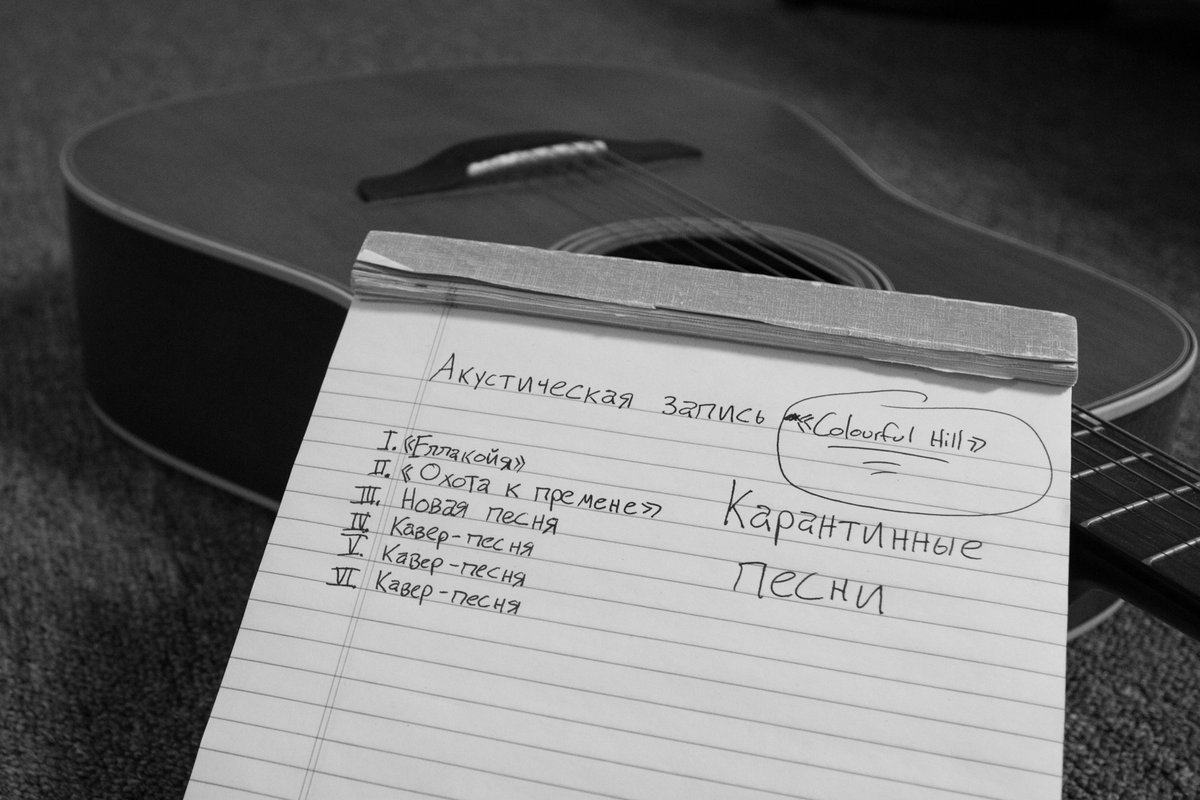 Акустическая запись «Colourful Hill»
I. «Еллакойя»
II. «Охота к премене»
III. Новая песня
IV. Кавер-песня
V. Кавер-песня
VI. Кавер-песня
Карантинные
песни